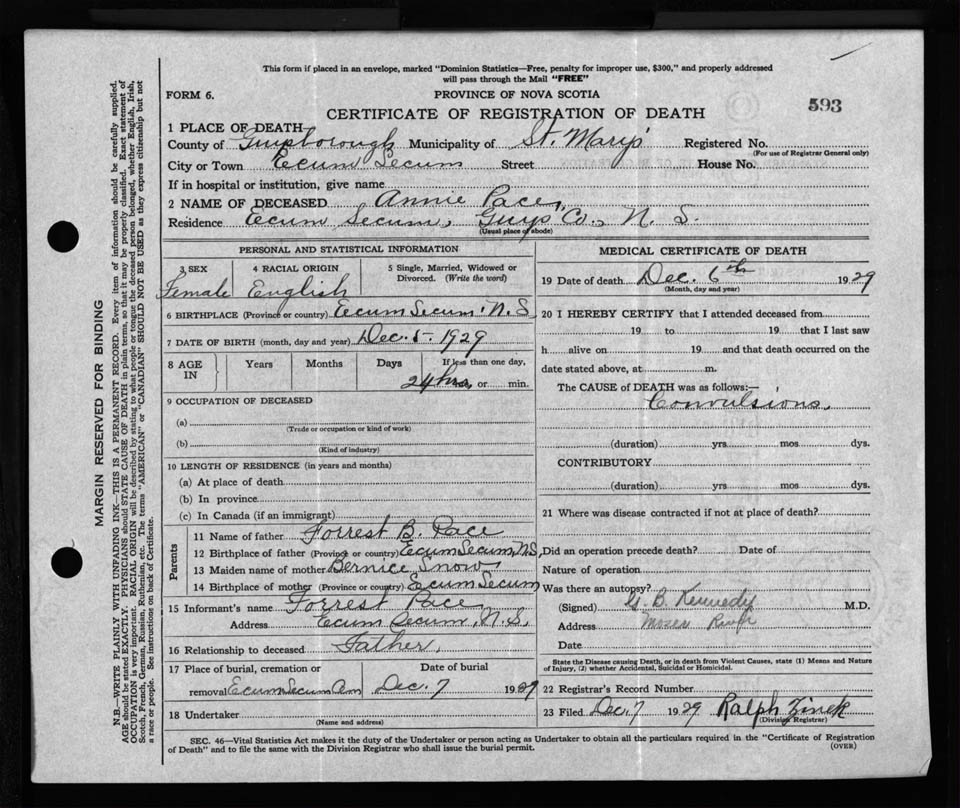 This form if placed in an envelope, marked "Dominion Statistics—Free, penalty for improper use, $300," and properly addressed
will pass through the Mail "FREE"
FORM 6.
PROVINCE OF NOVA SCOTIA
593
CERTIFICATE OF REGISTRATION OF DEATH
1 PLACE OF DEATH
County of Guysborough Municipality of St. Mary's Registered No.
(For use of Registrar General only)
City or Town Ecum Secum Street House No.
If in hospital or institution, give name
2 NAME OF DECEASED Annie Pace,
Residence Ecum Secum, Guys Co., N. S.
(Usual place of abode)
PERSONAL AND STATISTICAL INFORMATION
3 SEX 4 RACIAL ORIGIN 5 Single, Married, Widowed or
Divorced. (Write the word)
Female English
6 BIRTHPLACE (Province or country) Ecum Secum N. S
7 DATE OF BIRTH (month, day and year) Dec. 5 - 1929
8 AGE IN Years Months Days If less than one day,
24 hrs. or min.
9 OCCUPATION OF DECEASED
(a)
(Trade or occupation or kind of work)
(b)
(Kind of industry)
10 LENGTH OF RESIDENCE (in years and months)
(a) At place of death
(b) In province
(c) In Canada (if an immigrant)
Parents
11 Name of father Forrest B. Pace
12 Birthplace of father (Province or country) Ecum Secum, N.S,
13 Maiden name of mother Bernice Snow
14 Birthplace of mother (Province or country) Ecum Secum
15 Informant's name Forrest Pace
Address Ecum Secum, N.S.
16 Relationship to deceased Father.
17 Place of burial, cremation or Date of burial
removal Ecum Secum Dec. 7 1929
18 Undertaker
(Name and address)
MEDICAL CERTIFICATE OF DEATH
19 Date of death Dec. 6th 1929
(Month, day and year)
20 I HEREBY CERTIFY that I attended deceased from
19 to 19 that I last saw
h alive on 19 and that death occurred on the
date stated above, at m.
The CAUSE of DEATH was as follows:—
Convulsions,
(duration) yrs mos dys.
CONTRIBUTORY
(duration) yrs mos dys.
21 Where was disease contracted if not at place of death?
Did an operation precede death? Date of
Nature of operation
Was there an autopsy?
(Signed) B. Kennedy M.D.
Address Moser River
Date
State the Disease causing Death, or in death from Violent Causes, state (1) Means and Nature
of Injury, (2) whether Accidental, Suicidal or Homicidal.
22 Registrar's Record Number
23 Filed Dec. 7 1929 Ralph Zinck
(Division Registrar)
SEC. 46—Vital Statistics Act makes it the duty of the Undertaker or person acting as Undertaker to obtain all the particulars required in the "Certificate of Registration
of Death" and to file the same with the Division Registrar who shall issue the burial permit.
(OVER)
MARGIN RESERVED FOR BINDING
N.B.—WRITE PLAINLY WITH UNFADING INK—THIS IS A PERMANENT RECORD. Every item of information should be carefully supplied.
AGE should be stated EXACTLY. PHYSICIANS should STATE CAUSE OF DEATH in plain terms, so that it may be properly classified. Exact statement of
OCCUPATION is very important. RACIAL ORIGIN will be described by stating to what people or tongue the deceased person belonged, whether English, Irish,
Scotch, French, German, Russian, Ruthenian, etc. The terms "AMERICAN" or "CANADIAN" SHOULD NOT BE USED as they express citizenship but not
a race or people. See instructions on back of Certificate.